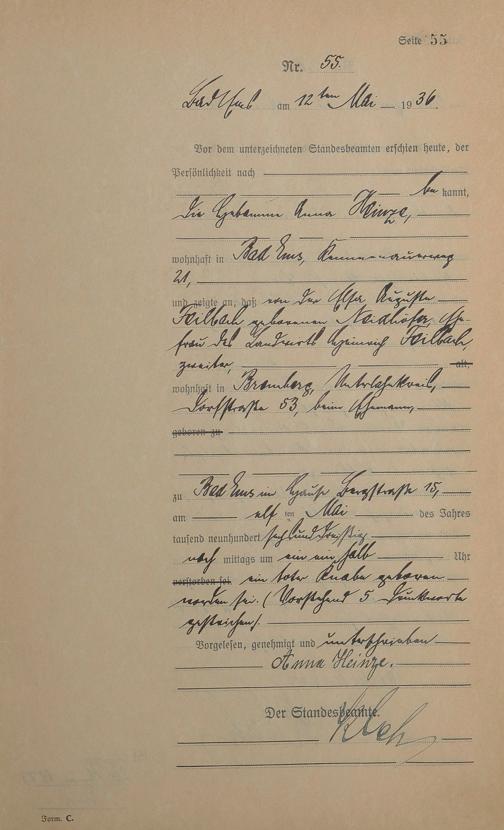 Seite 55
Nr. 55.
Bad Ems am 12ten Mai 1936.
Vor dem unterzeichneten Standesbeamten erschien heute, der
Persönlichkeit nach
bekannt,
die Hebamme Anna Heinze,
wohnhaft in Bad Ems,
21,
und zeigte an, daß von der Elsa Auguste
Feilbach geborenen Neidhöfer, Ehe-
frau des Landwirts Heinrich Feilbach,
zweiter, alt,
wohnhaft in Bremberg, Unterlahnkreis,
Dorfstraße 53, beim Ehemann,
geboren zu
zu Bad Ems im Hause Bergstraße 15,
am elften Mai des Jahres
tausend neunhundert sechsunddreißig
nach mittags um ein ein halb Uhr
verstorben sei. ein toter Knabe geboren
worden sei. (Vorstehend 5 Druckworte
gestrichen).
Vorgelesen, genehmigt und unterschrieben
Anna Heinze.
Der Standesbeamte.
Form. C.